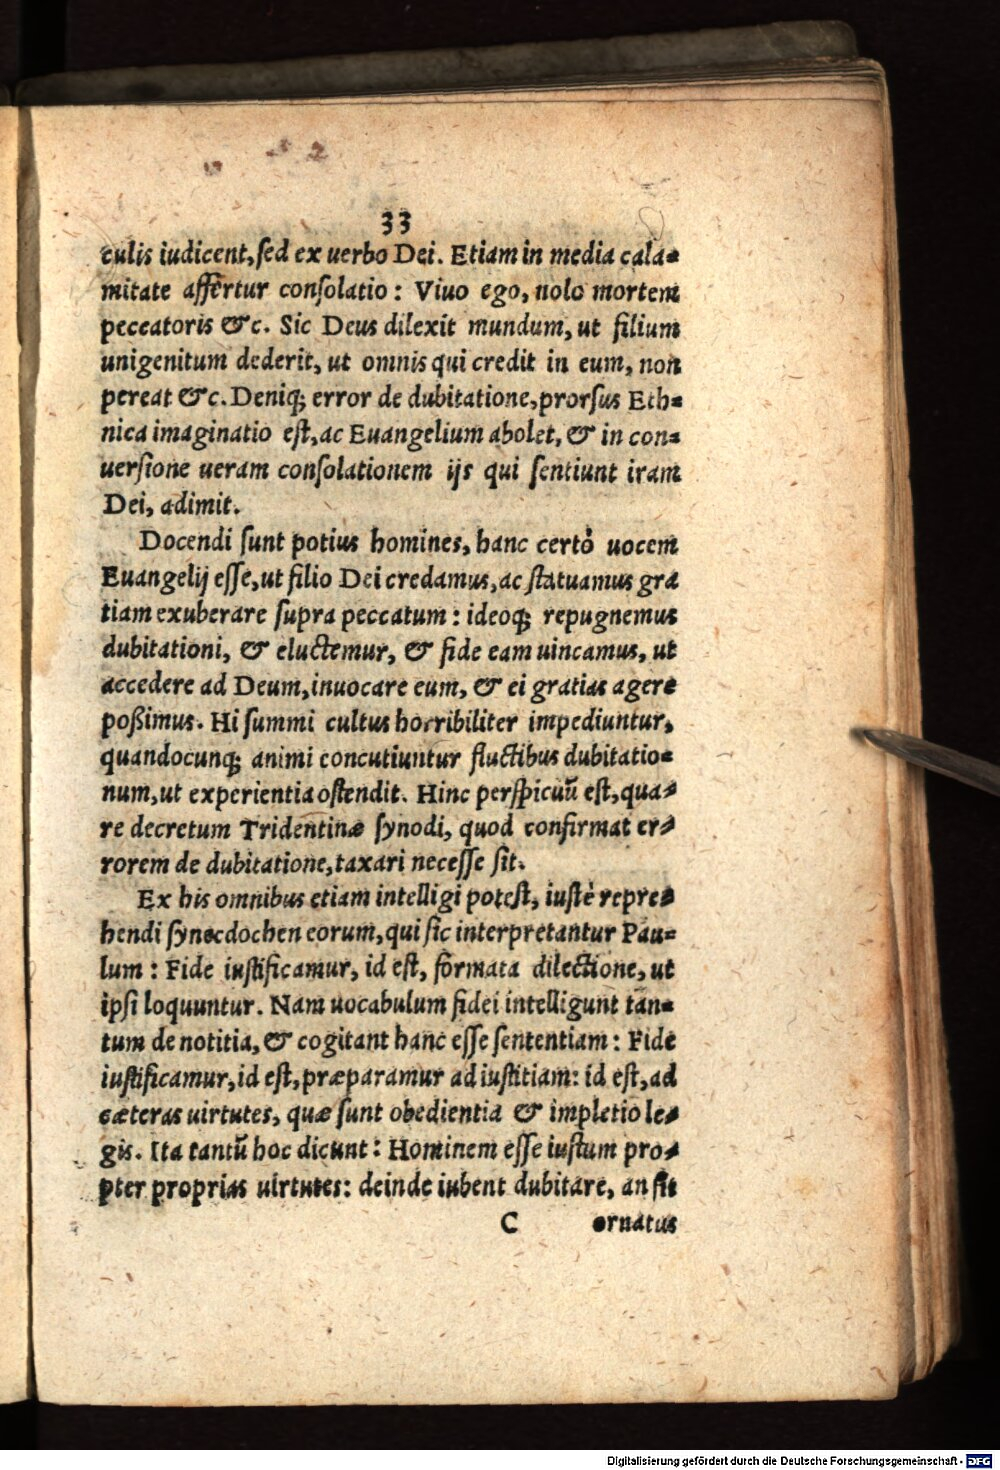 33
culis iudicent, sed ex uerbo Dei. Etiam in media cala-
mitate affertur consolatio: Viuo ego, nolo mortem
peccatoris &c. Sic Deus dilexit mundum, ut filium
unigenitum dederit, ut omnis qui credit in eum, non
pereat &c. Deniq; error de dubitatione, prorsus Eth-
nica imaginatio est, ac Euangelium abolet, & in con-
uersione ueram consolationem ijs qui sentiunt iram
Dei, adimit.
Docendi sunt potius homines, hanc certò uocem
Euangelij esse, ut filio Dei credamus, ac statuamus gra
tiam exuberare supra peccatum: ideoq; repugnemus
dubitationi, & eluctemur, & fide eam uincamus, ut
accedere ad Deum, inuocare eum, & ei gratias agere
poßimus. Hi summi cultus horribiliter impediuntur,
quandocunq; animi concutiuntur fluctibus dubitatio-
num, ut experientia ostendit. Hinc perspicuũ est, qua-
re decretum Tridentinæ synodi, quod confirmat er-
rorem de dubitatione, taxari necesse sit.
Ex his omnibus etiam intelligi potest, iustè repre-
hendi synecdochen eorum, qui sic interpretantur Pau-
lum: Fide iustificamur, id est, formata dilectione, ut
ipsi loquuntur. Nam uocabulum fidei intelligunt tan-
tum de notitia, & cogitant hanc esse sententiam: Fide
iustificamur, id est, præparamur ad iustitiam: id est, ad
cæteras uirtutes, quæ sunt obedientia & impletio le-
gis. Ita tantũ hoc dicunt: Hominem esse iustum pro-
pter proprias uirtutes: deinde iubent dubitare, an sit
C ornatus
Digitalisierung gefördert durch die Deutsche Forschungsgemeinschaft - DFG